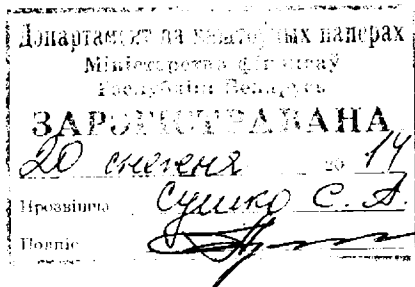 Дэпартамент па каштоўных паперах
Міністэрства фінансаў
Рэспублікі Беларусь
ЗАРЭГІСТРАВАНА
20 снежня 20 14
Прозвішча Сушко С. А.
Подпіс